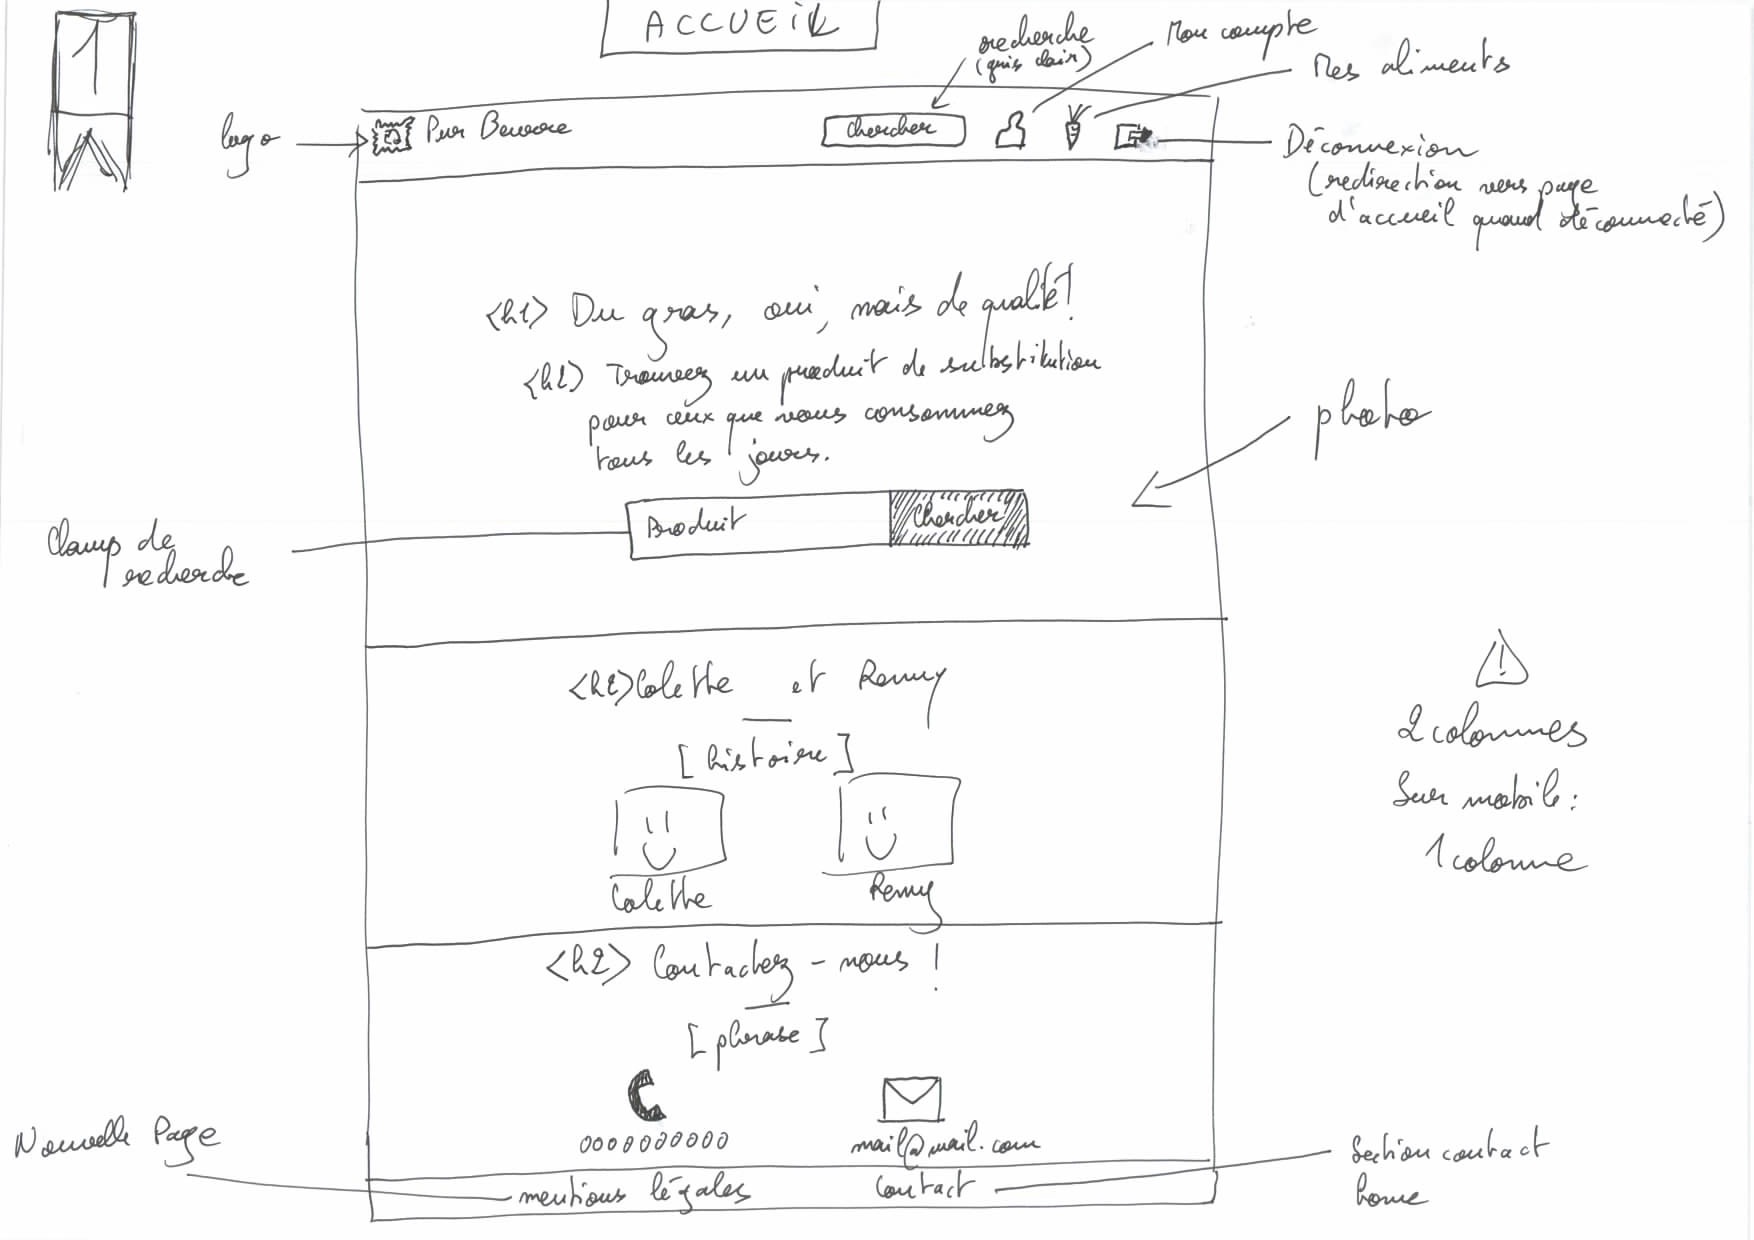 1
ACCUEIL
recherche
(gris clair)
Mon compte
Mes aliments
logo
Pur Beurre
Chercher
Déconnexion
(redirection vers page
d'accueil quand déconnecté)
<h1> Du gras, oui, mais de qualité!
<h2> Trouvez un produit de substitution
pour ceux que vous consommez
tous les jours.
photo
Champ de
recherche
Produit
Chercher
<h2> Colette et Remy
[histoire]
Colette
Remy
!
2 colonnes
Sur mobile:
1 colonne
<h2> Contactez-nous !
[phrase]
0000000000
mail@mail.com
Nouvelle Page
mentions légales
Contact
Section contact
home